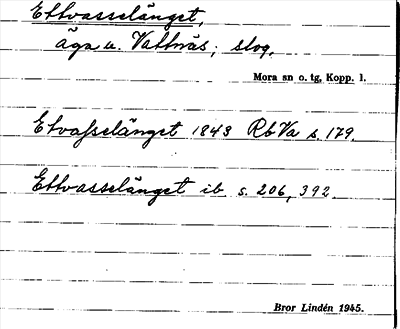 Ettvasselänget,
äga u. Vattnäs; skog.
Mora sn o. tg, Kopp. l.
Etvasselänget 1843 RbVa s. 179.
Ettvasselänget ib s. 206, 392
Bror Lindén 1945.